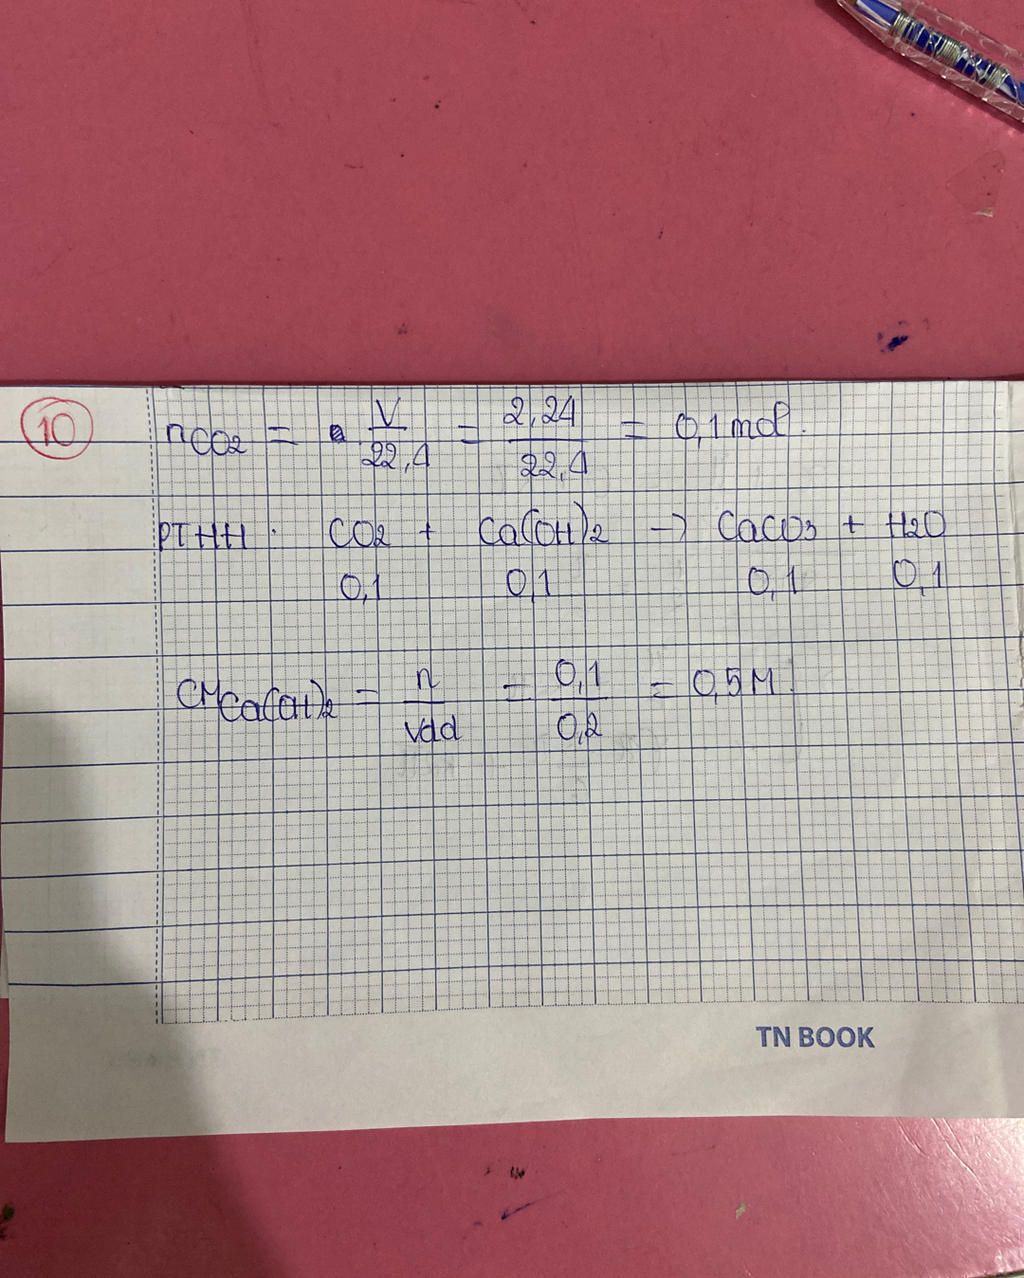 10
nCO2 = V/22,4 = 2,24/22,4 = 0,1 mol.
PTHH: CO2 + Ca(OH)2 → CaCO3 + H2O
0,1 0,1 0,1 0,1
CMCa(OH)2 = n/Vdd = 0,1/0,2 = 0,5M.
TN BOOK